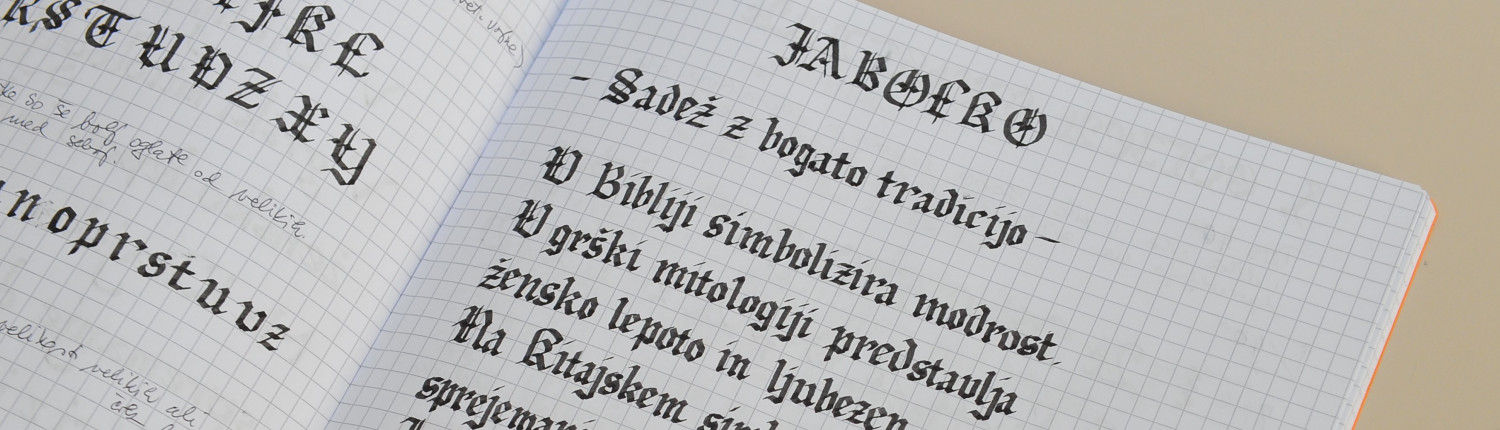 K L
R S T U V Z
X Y
so še bolj oglate od velikih.
med seboj.
n o p r s t u v z
velikost velikih ali
JABOLKO
- Sadež z bogato tradicijo -
V Bibliji simbolizira modrost,
V grški mitologiji predstavlja
žensko lepoto in ljubezen
Na Kitajskem